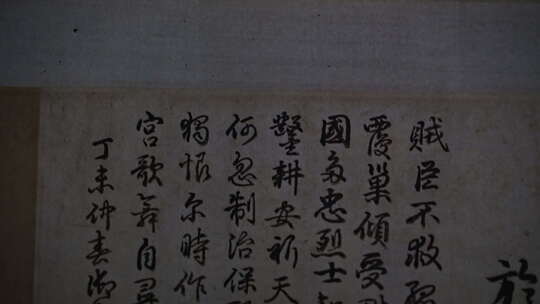 於
賊臣不救
覆巢傾受
國多忠烈士
鑿耕安祈天
何忽制治保
獨恨尔時作
宮歌舞自尋
丁未仲春御